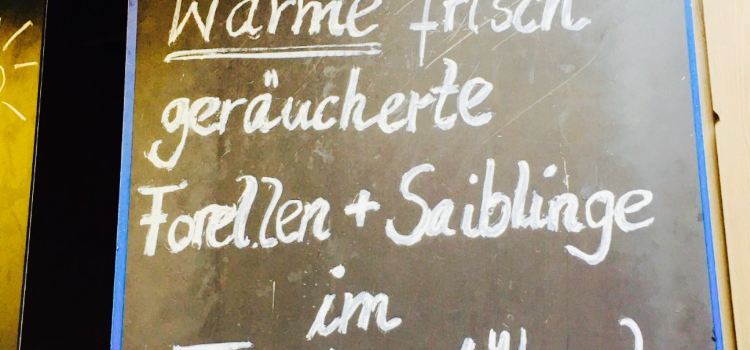 Warme frisch
geräucherte
Forellen + Saiblinge
im